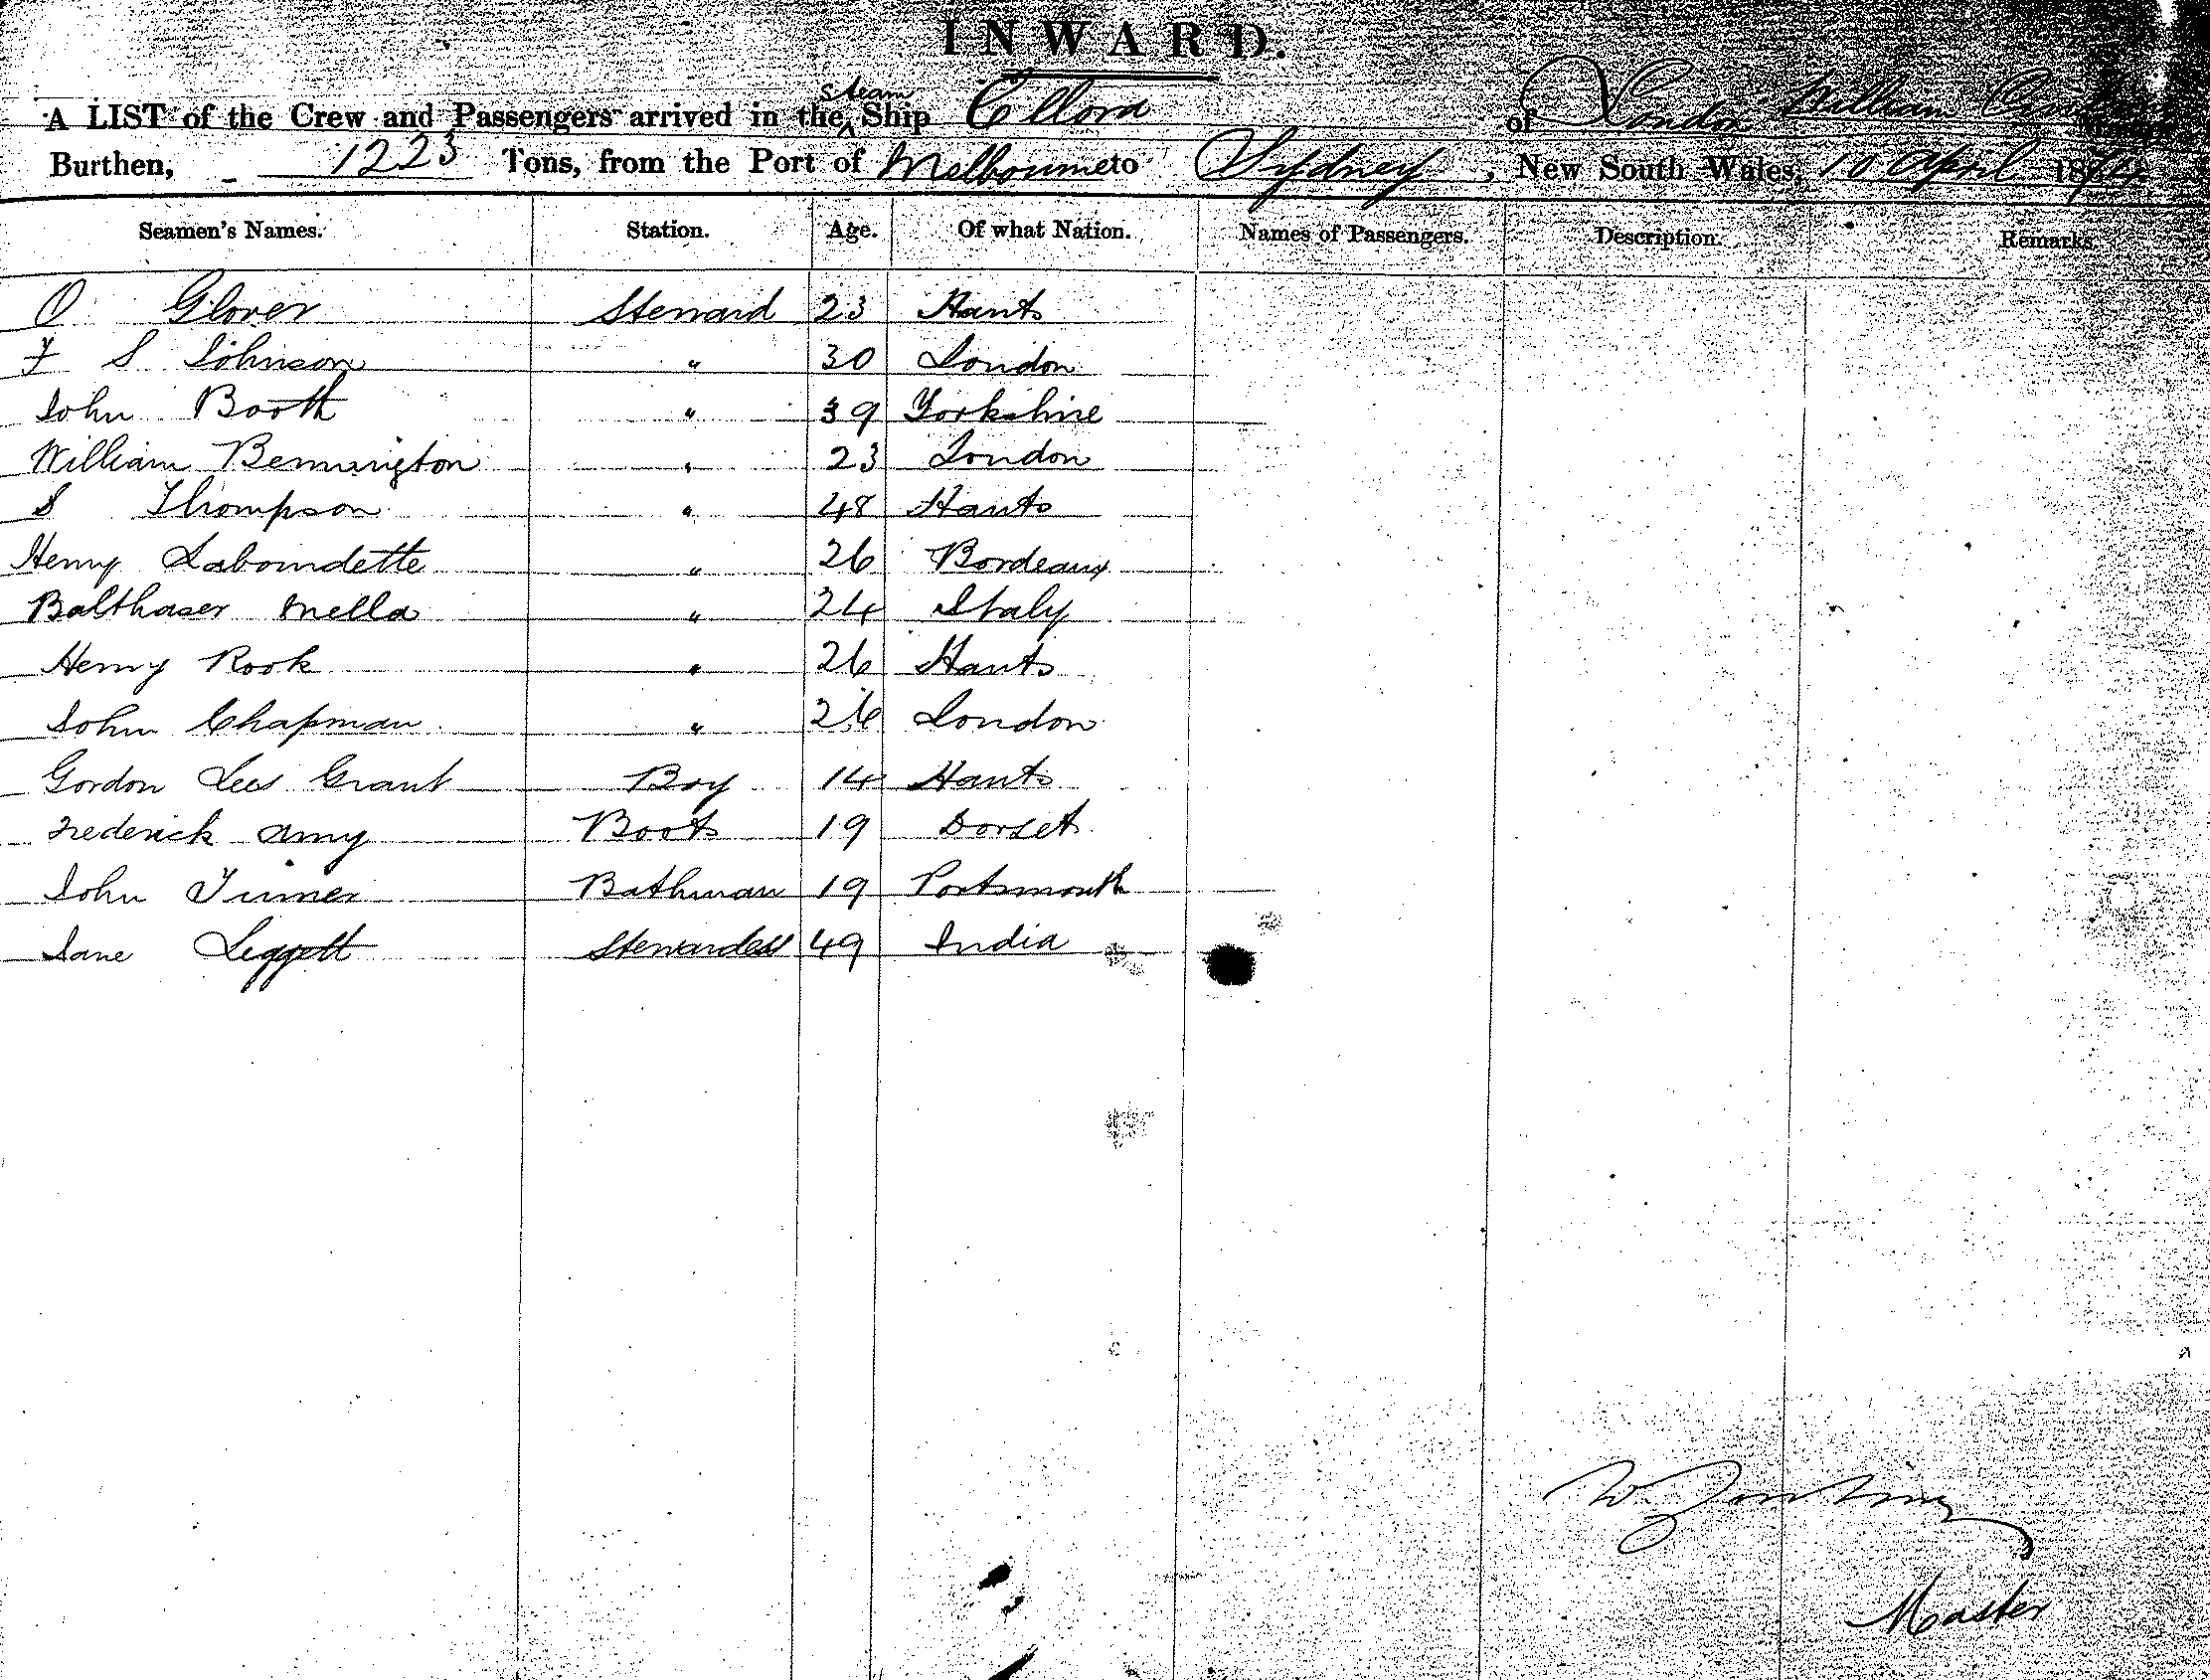 INWARD.
A LIST of the Crew and Passengers arrived in the steam Ship Ellora of London William
Burthen, 1223 Tons, from the Port of Melbourne to Sydney, New South Wales, 10 April 1874
Seamen's Names. Station. Age. Of what Nation. Names of Passengers. Description. Remarks.
O Glover Steward 23 Hants
F S Johnson " 30 London
John Booth " 39 Yorkshire
William Bennington " 23 London
S Thompson " 48 Hants
Henry Labourdette " 26 Bordeaux
Balthaser Mella " 24 Italy
Henry Rook " 26 Hants
John Chapman " 26 London
Gordon Lees Grant Boy 14 Hants
Frederick Amy Boots 19 Dorset
John Turner Bathman 19 Portsmouth
Jane Leggett Stewardess 49 India
W
Master